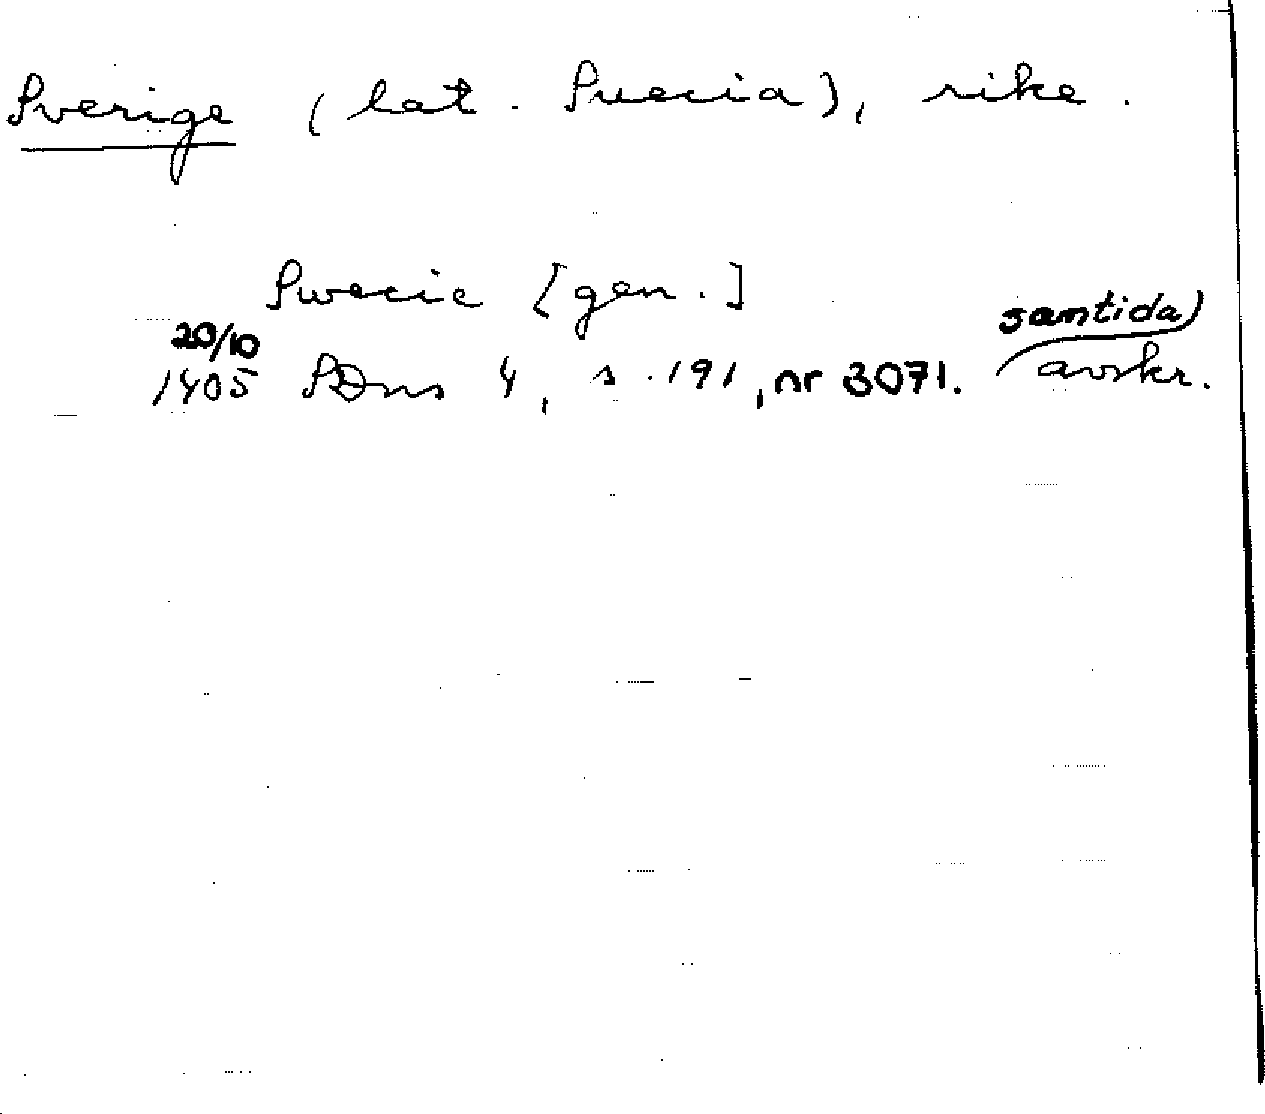 Sverige (lat. Suecia), rike.
Swecie [gen.]
20/10 samtida)
1405 SDns 4, s. 191, nr 3071. avskr.